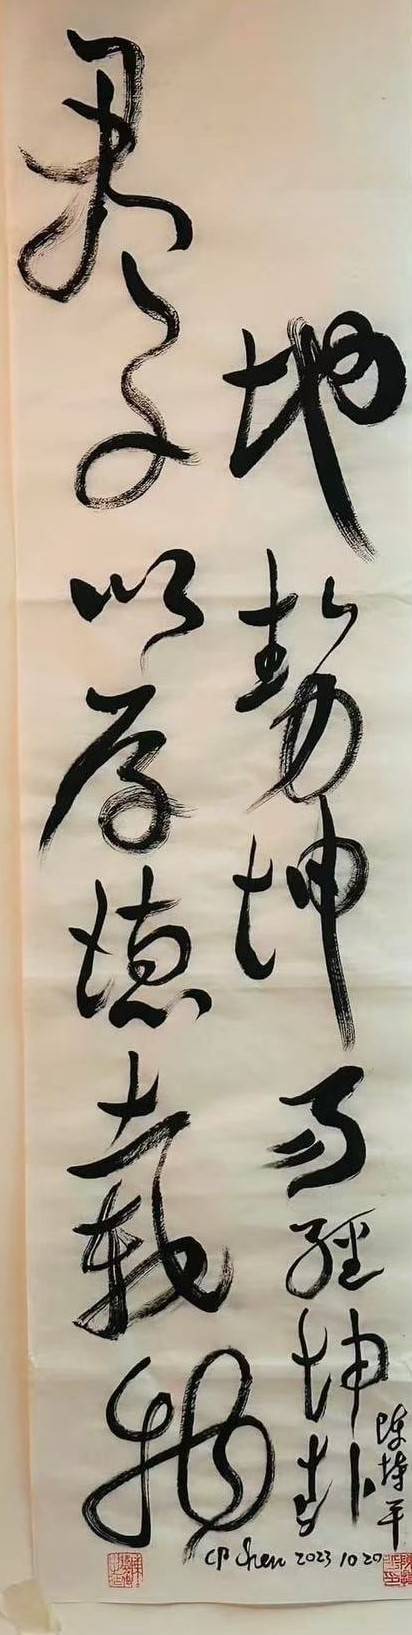 地勢坤 易經坤卦
君子以厚德載物
陳持平
CP Chen 2023 10 20